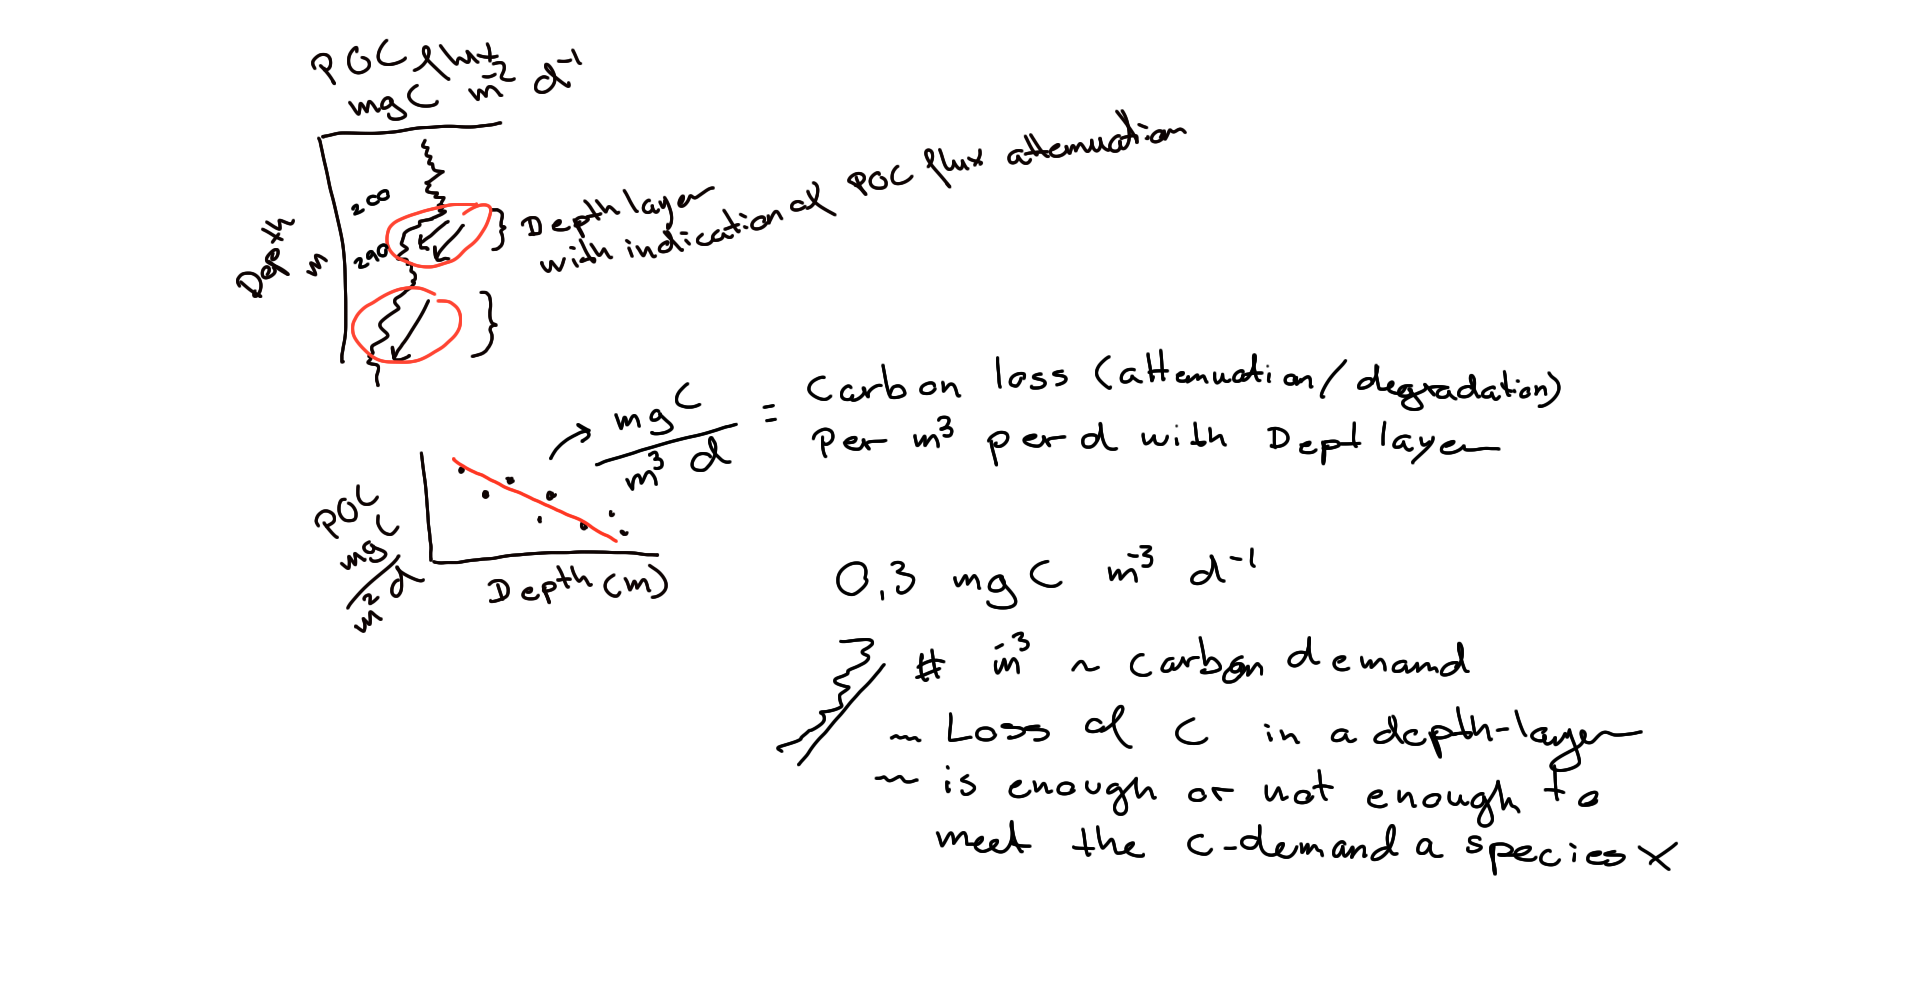 POC flux
mg C m⁻² d⁻¹
Depth
m
200
290
Depth layer
with indication of POC flux attenuation
mg C
m³ d
= Carbon loss (attenuation/degradation)
Per m³ per d with Dept layer
POC
mg C
m² d
Depth (m)
0,3 mg C m⁻³ d⁻¹
# m⁻³ ~ carbon demand
~ Loss of C in a depth-layer
~ is enough or not enough to
meet the C-demand a species X